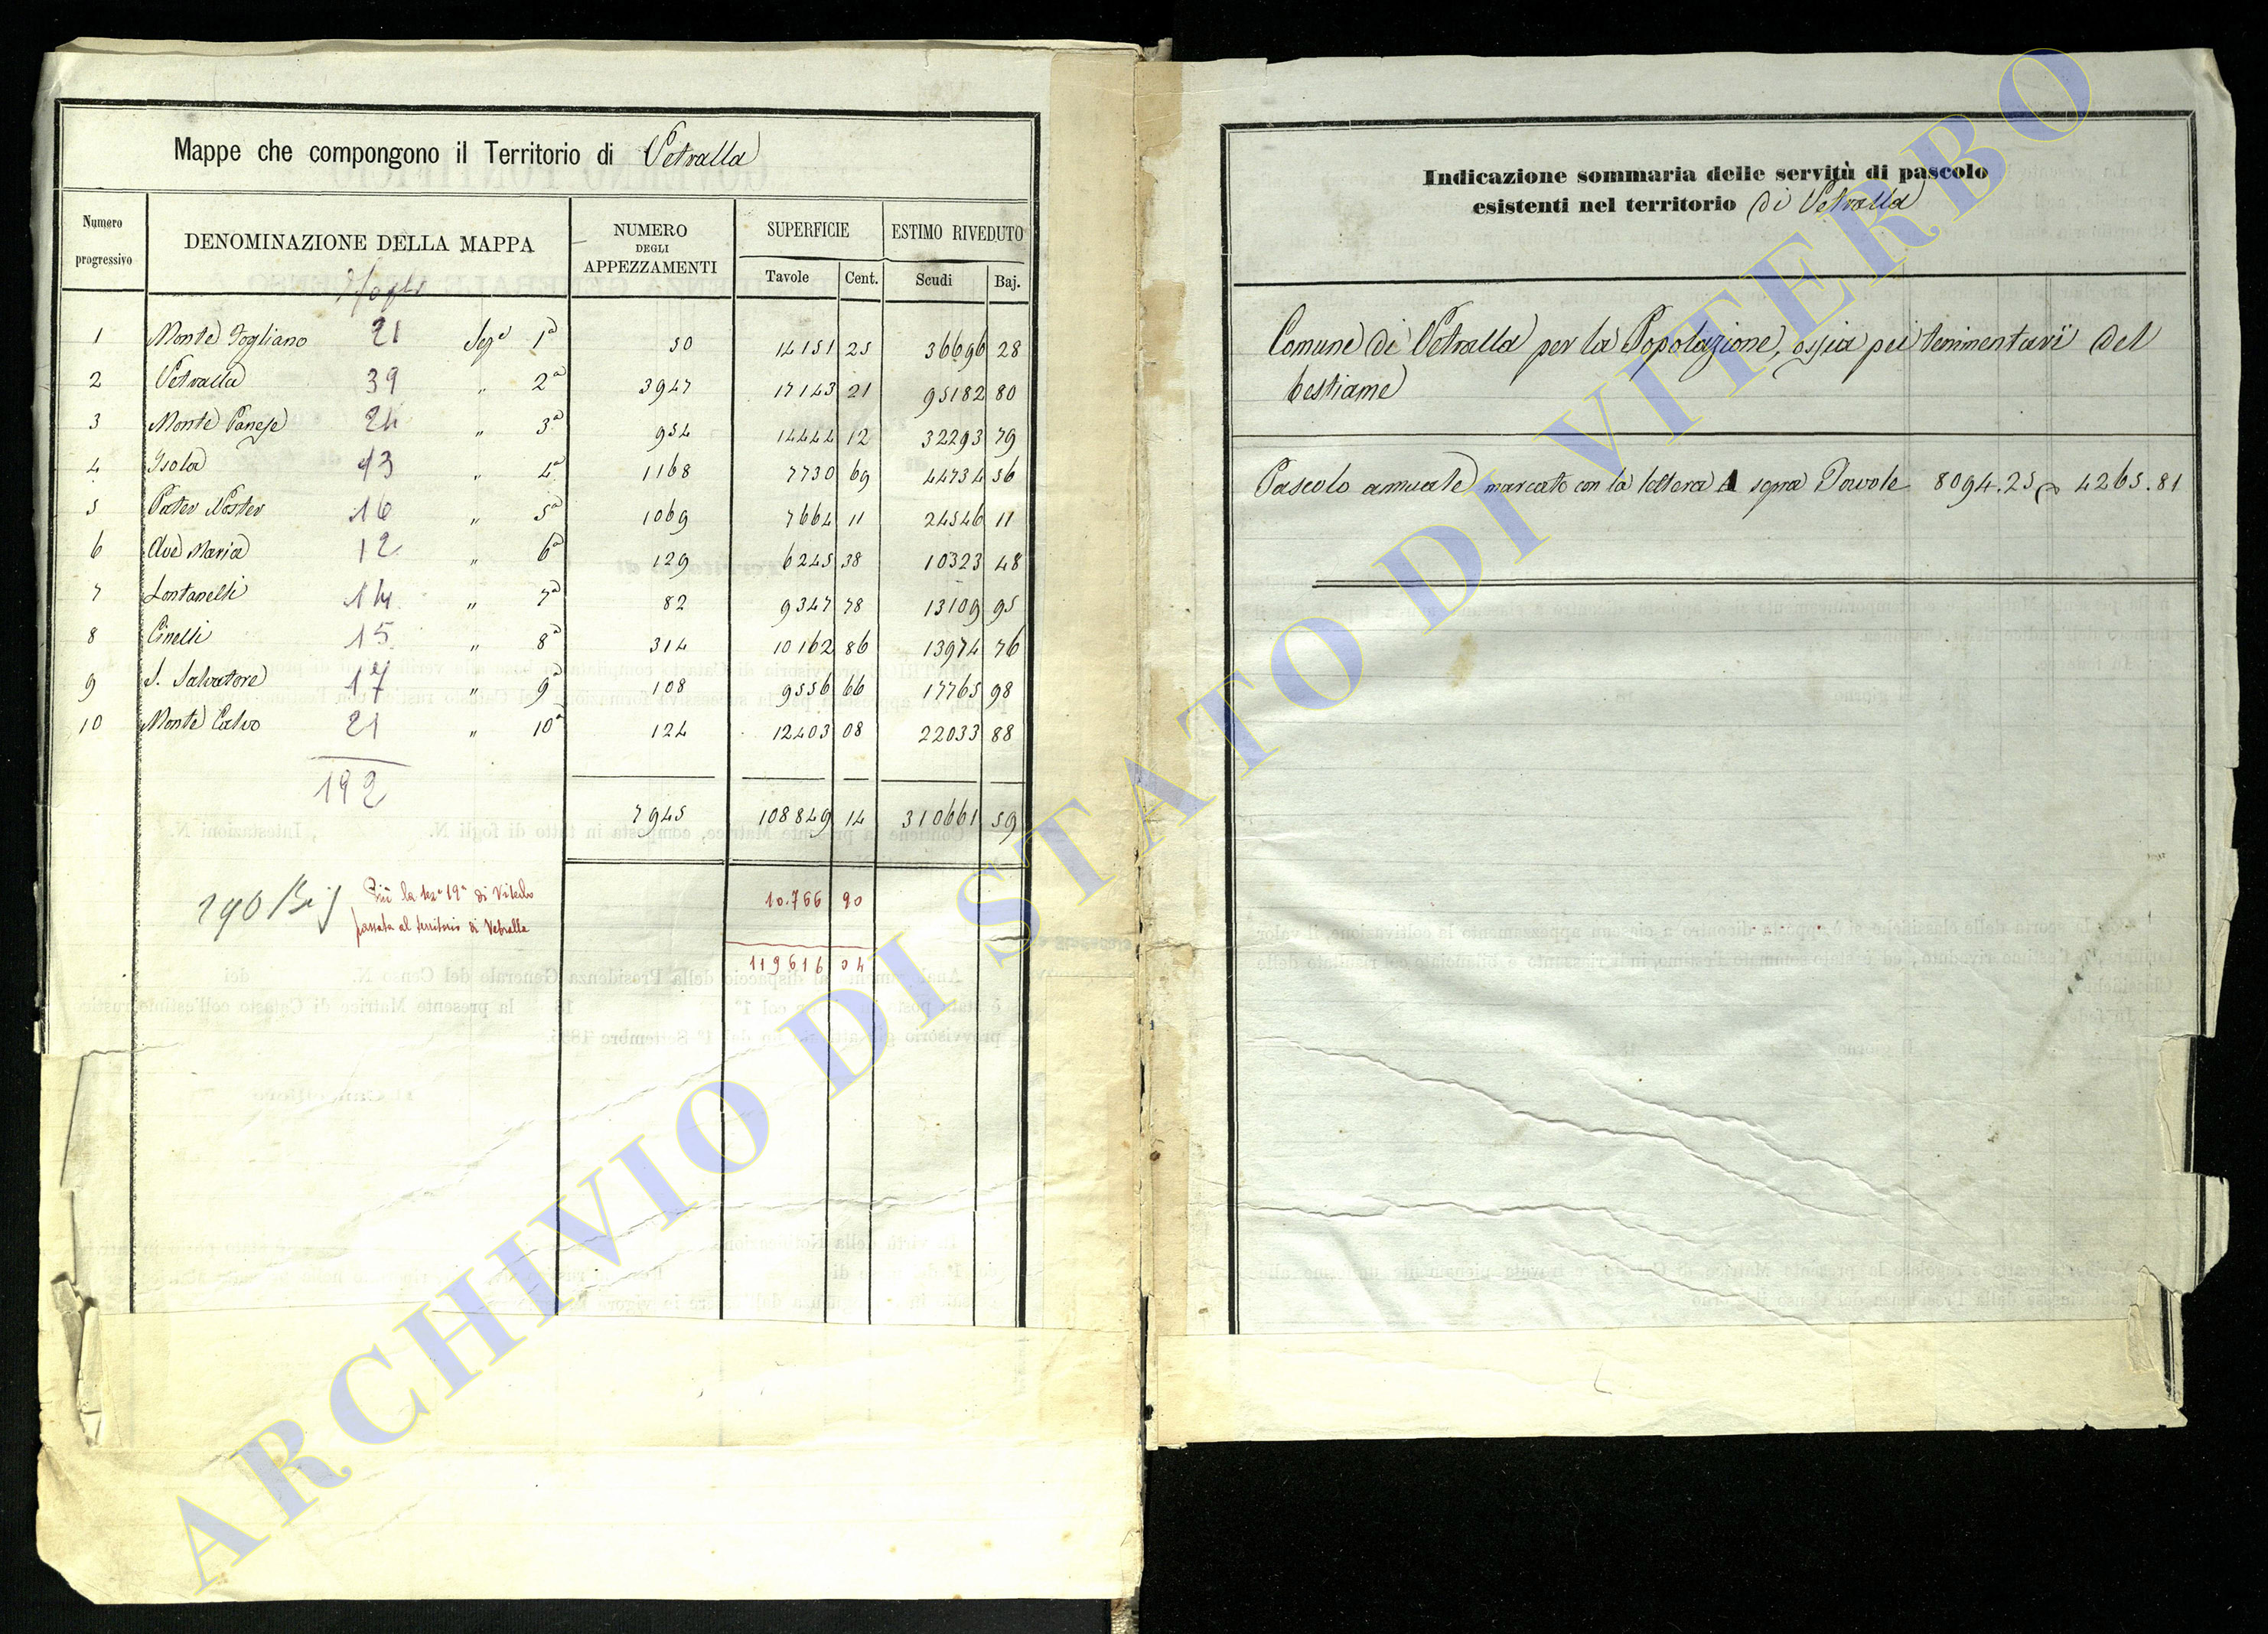 Mappe che compongono il Territorio di Vetralla
Numero progressivo
DENOMINAZIONE DELLA MAPPA
NUMERO DEGLI APPEZZAMENTI
SUPERFICIE
ESTIMO RIVEDUTO
Tavole Cent. Scudi Baj.
fogli
1 Monte Fogliano 21 Sez.e 1a 50 14151 25 36696 28
2 Vetralla 39 " 2a 3947 17143 21 95182 80
3 Monte Panese 24 " 3a 954 14444 12 32293 79
4 Isola 13 " 4a 1168 7730 69 44734 56
5 Pater Noster 16 " 5a 1069 7664 11 24546 11
6 Ave Maria 12 " 6a 129 6245 38 10323 48
7 " 7a 82 9347 78 13109 95
8 Cinelli 15 " 8a 314 10162 86 13974 76
9 S. Salvatore 17 " 9a 108 9556 66 17765 98
10 Monte Calvo 21 " 10a 124 12403 08 22033 88
192
7945 108849 14 310661 59
190 Bis
Più la sez.e 19a di Viterbo 10.766 90
passata al territorio di Vetralla
119616 04
Indicazione sommaria delle servitù di pascolo
esistenti nel territorio di Vetralla
Comune di Vetralla per la Popolazione, ossia pei tenimentarii del
bestiame
Pascolo annuale marcato con la lettera A sopra Tavole 8094.25 4265.81
ARCHIVIO DI STATO DI VITERBO